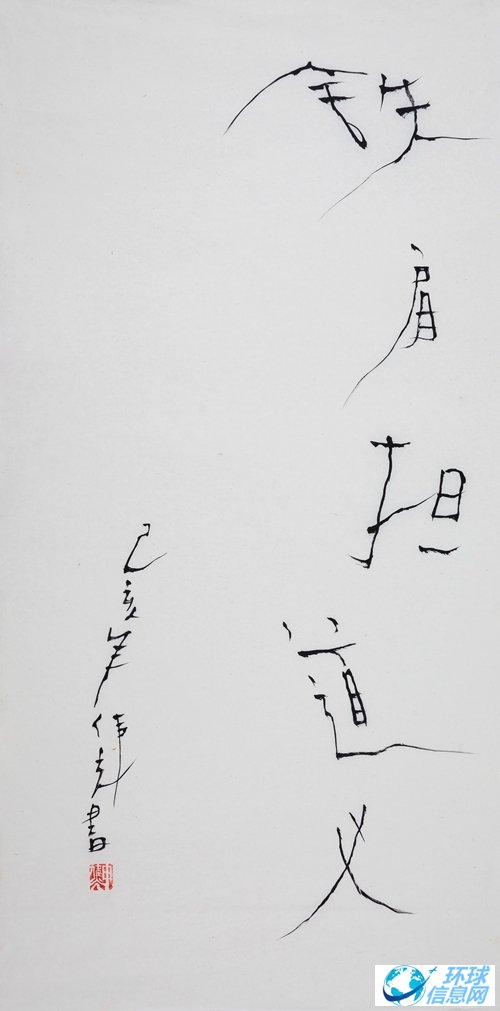 铁肩担道义
己亥年伟光書
环球
信息网